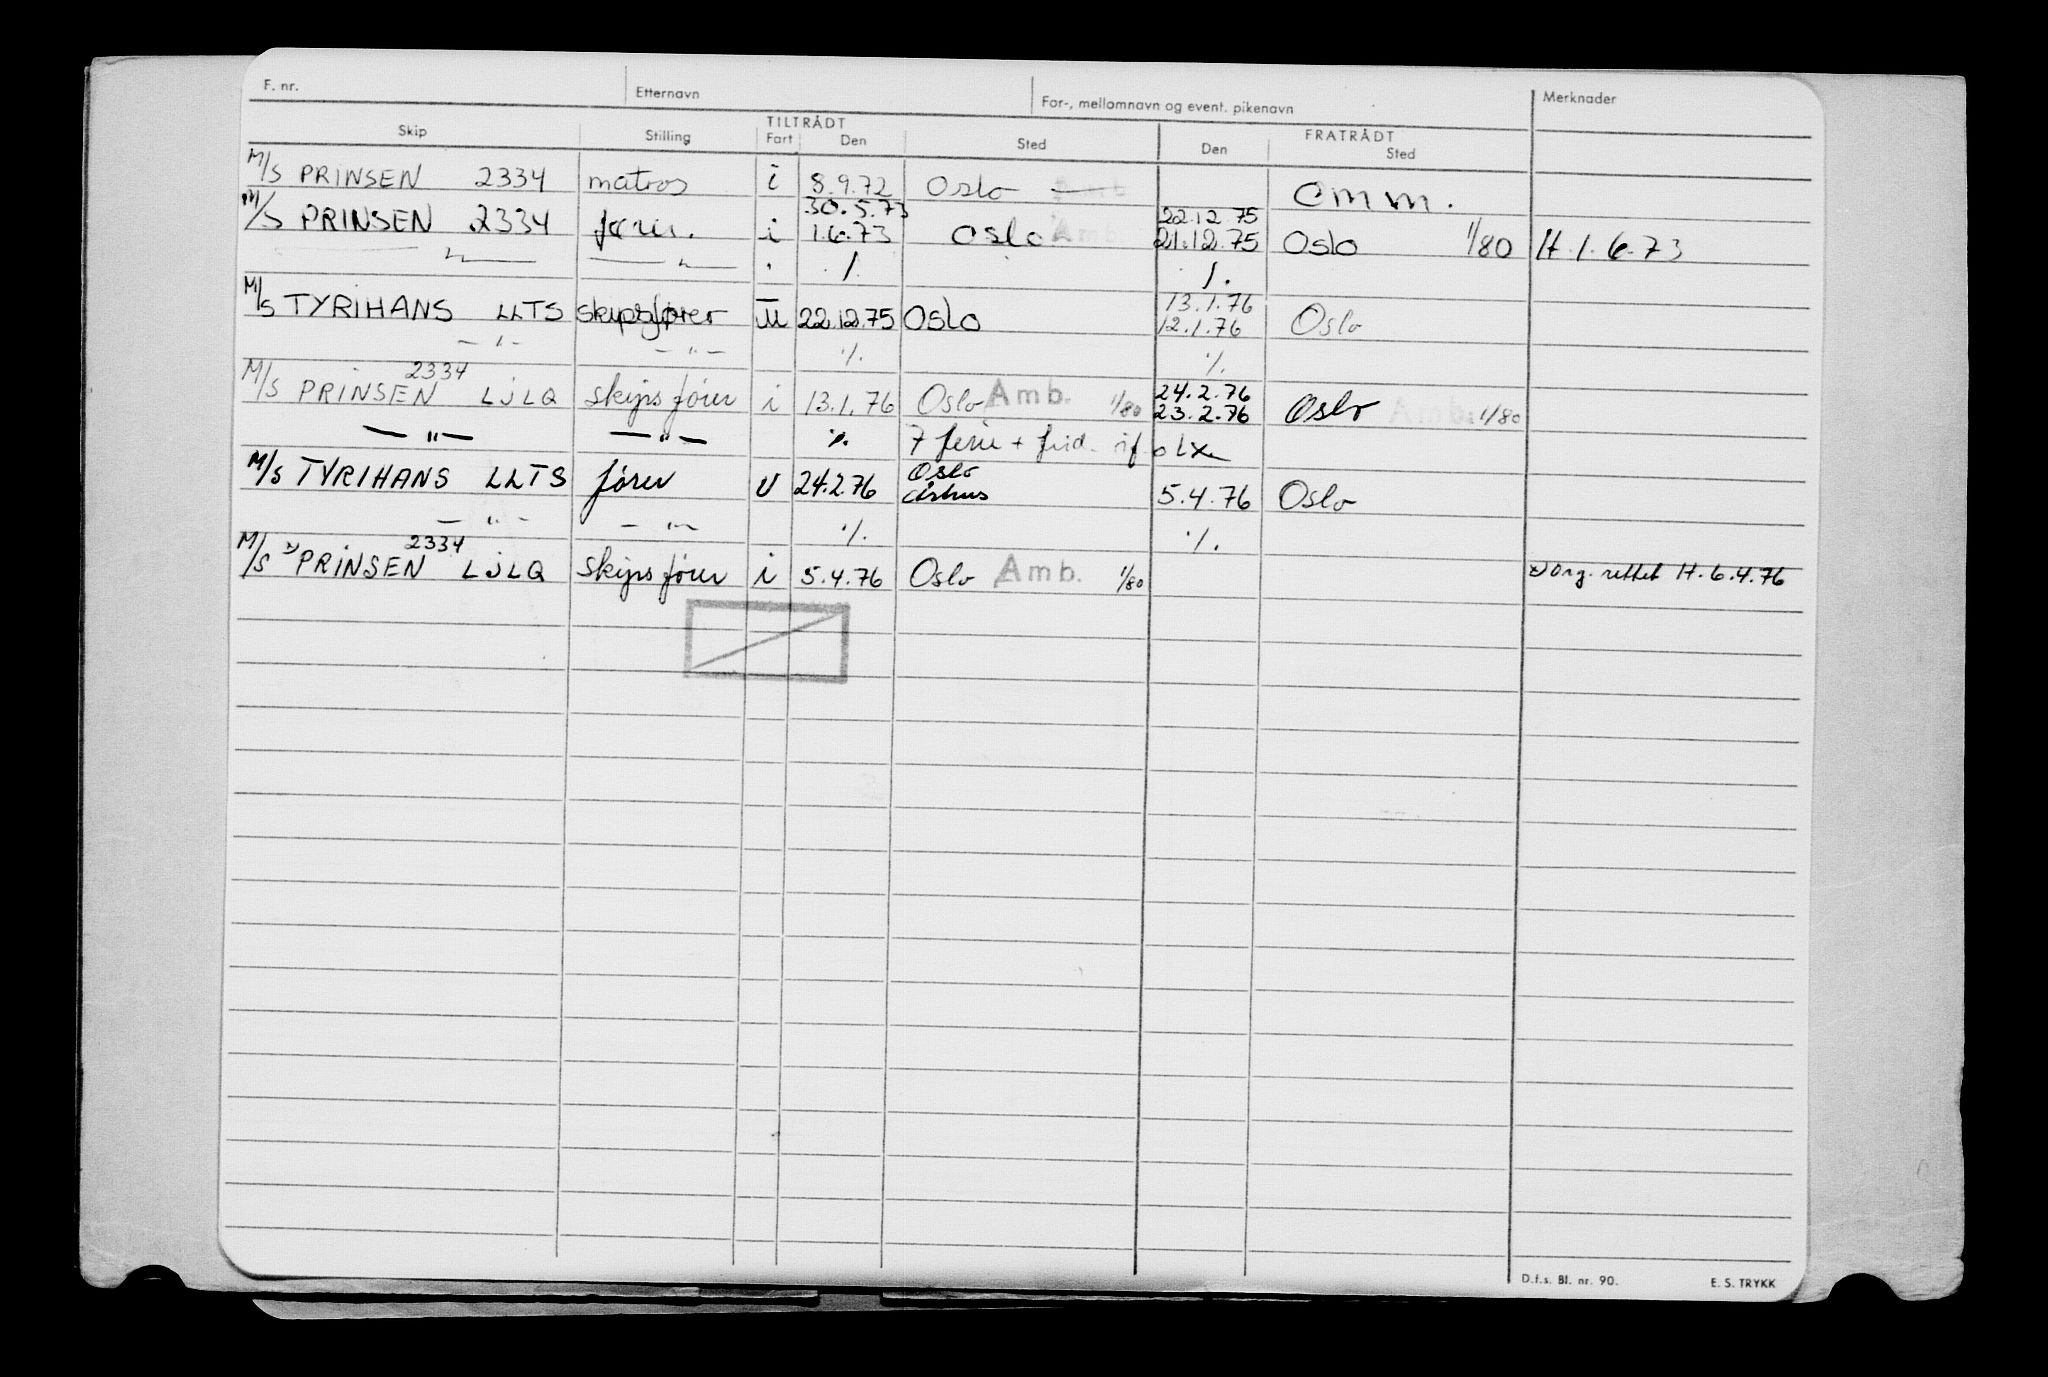 F. nr. Etternavn For-, mellomnavn og event. pikenavn Merknader
TILTRÅDT FRATRÅDT
Skip Stilling Fart Den Sted Den Sted
M/S PRINSEN 2334 matros i 8.9.72 Oslo Omm.
30.5.73 22.12.75
M/S PRINSEN 2334 fører. i 1.6.73 Oslo Amb. 21.12.75 Oslo 1/80 H. 1.6.73
— " — — " — ./. ./.
13.1.76
M/S TYRIHANS LLTS skipsfører U 22.12.75 Oslo 12.1.76 Oslo
— " — — " — ./. ./.
2334 24.2.76
M/S PRINSEN LJLQ skipsfører i 13.1.76 Oslo Amb. 1/80 23.2.76 Oslo Amb. 1/80
— " — — " — ./. 7 ferie + frid.
Oslo
M/S TYRIHANS LLTS fører U 24.2.76 Århus 5.4.76 Oslo
— " — — " — ./. ./.
2334
M/S PRINSEN LJLQ Skipsfører i 5.4.76 Oslo Amb. 1/80 rettet H. 6.4.76
D.f.s. Bl. nr. 90. E. S. TRYKK